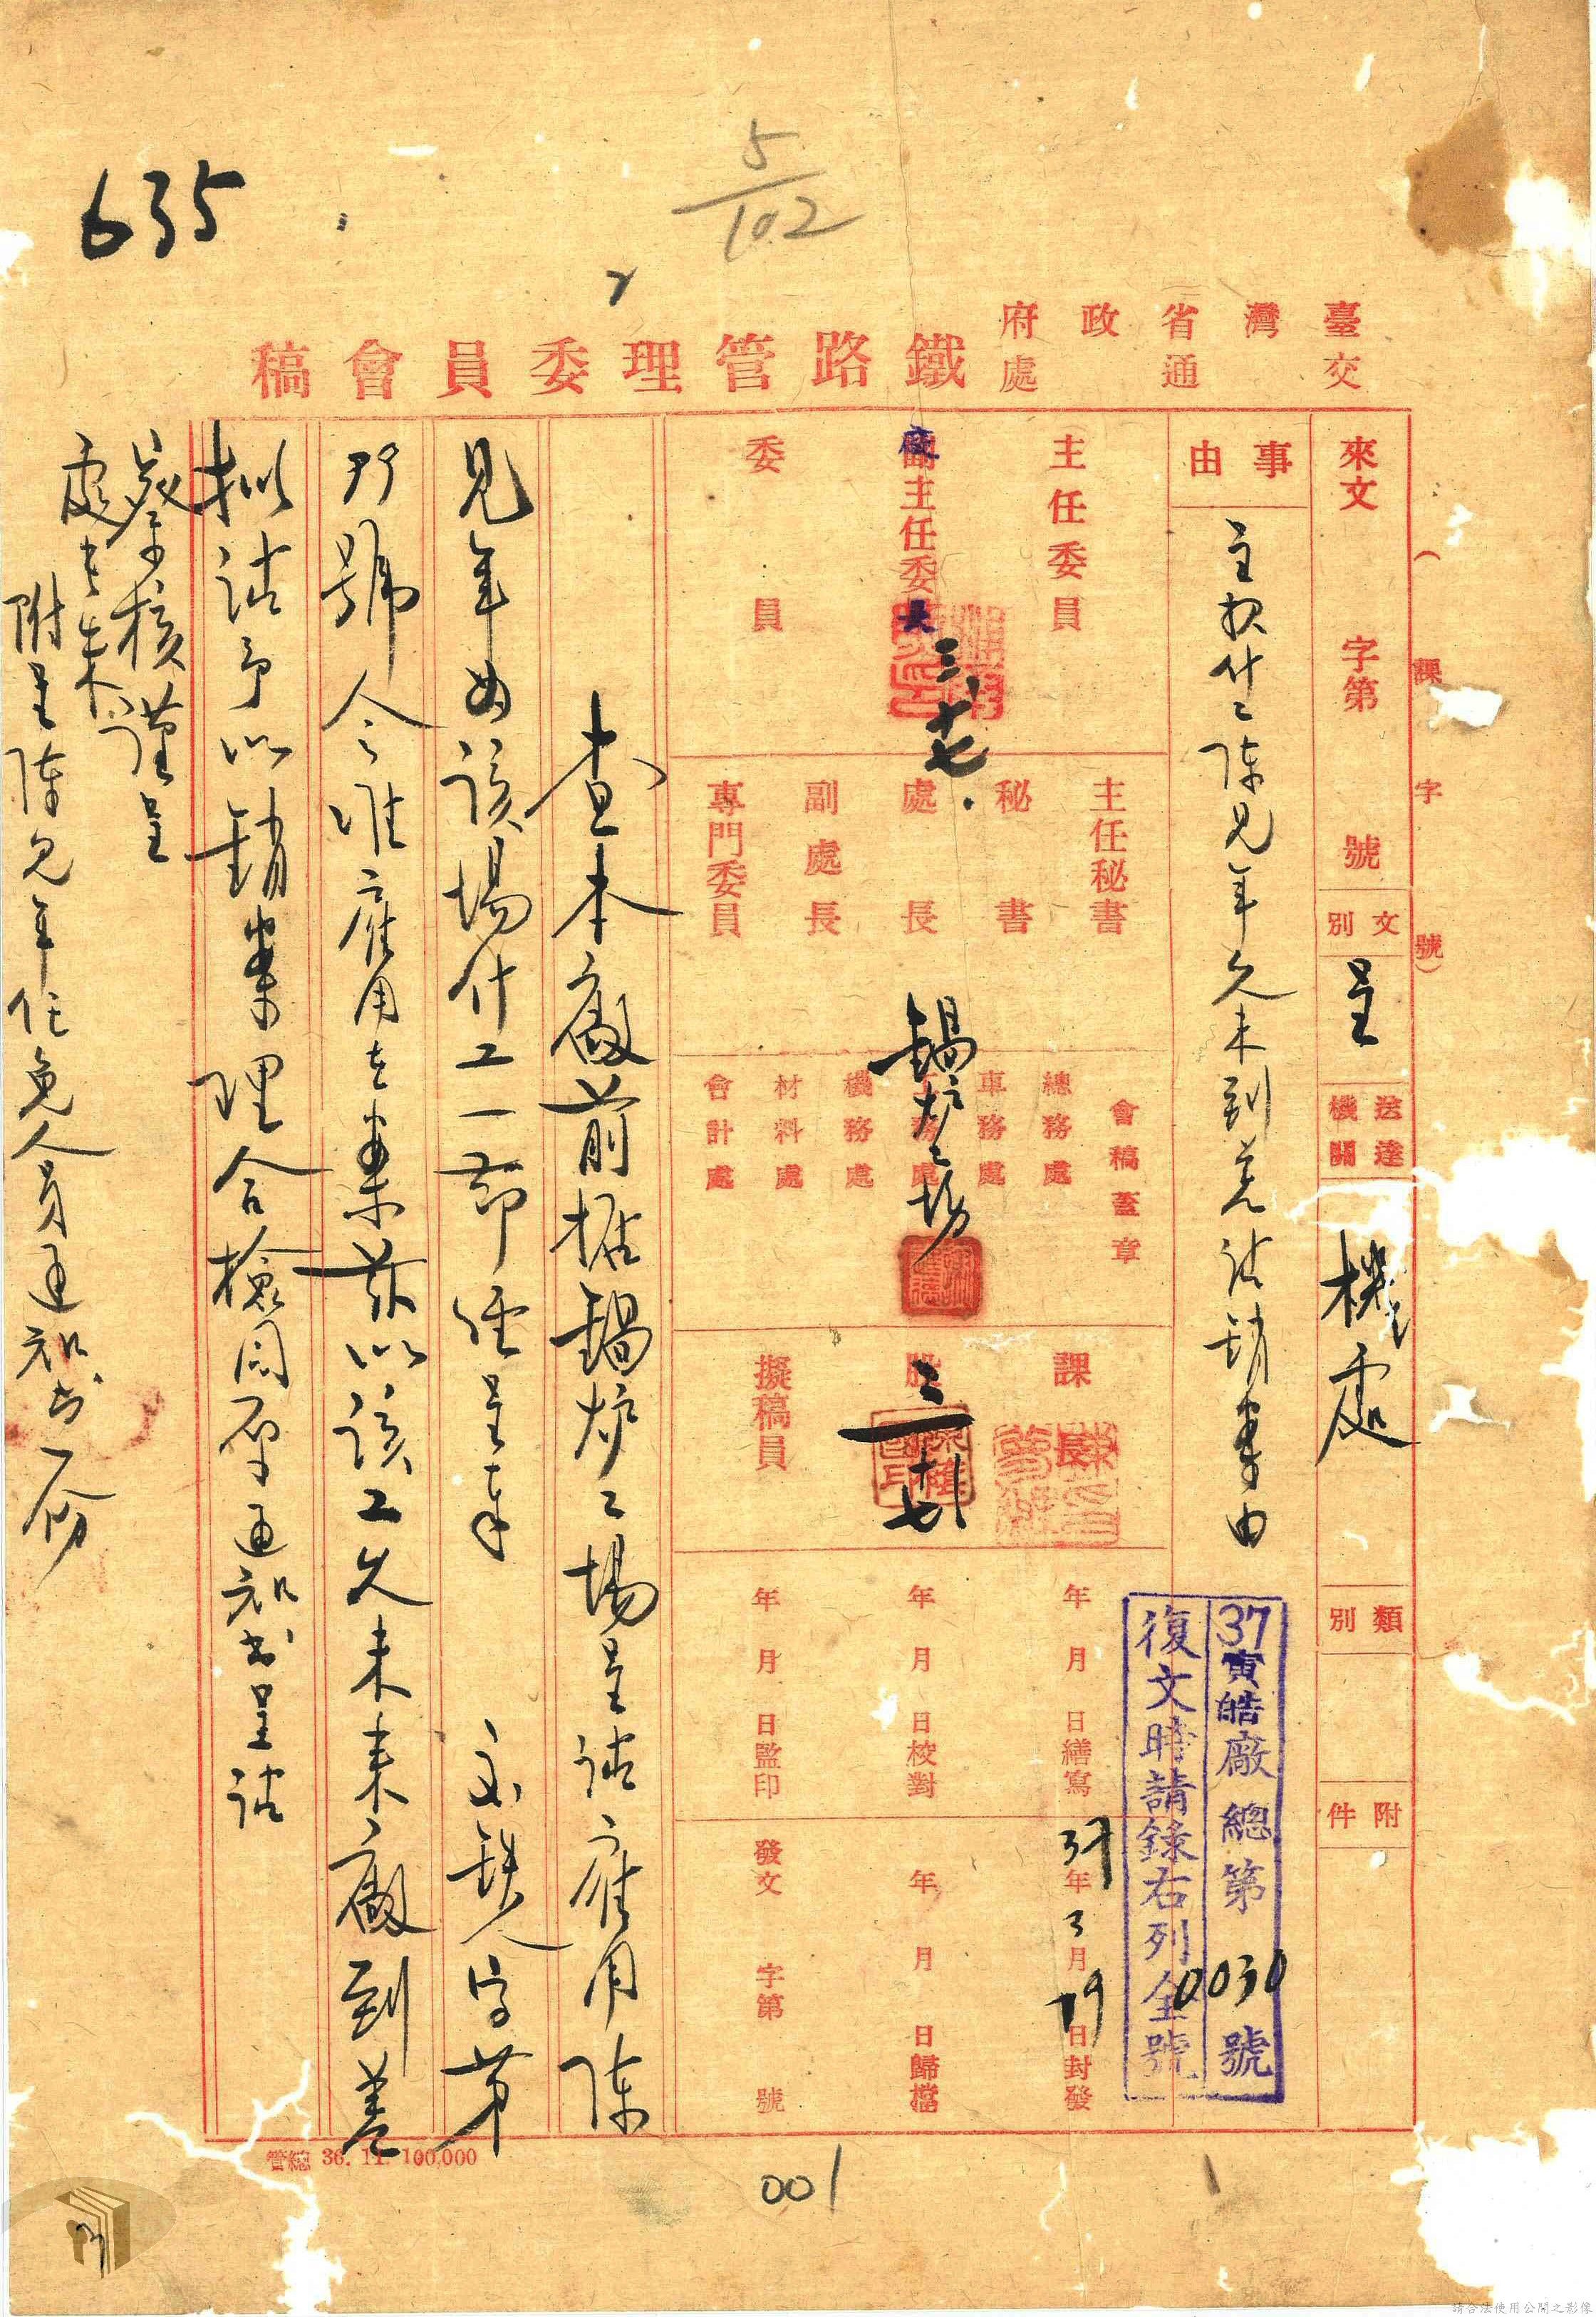 635
5/102
臺灣省政府
交通處
鐵路管理委員會稿
(課字號)
來文 字第 號
文別 呈
送達機關 機處
類別
附件
事由
主旨什工陳見年久未到差請銷案由
主任委員
廠副主任委員長 三、十七.
委員
主任秘書
秘書
處長
副處長
專門委員
會稿蓋章
總務處
車務處
工務處
機務處
材料處
會計處
鍋炉工場
課長
股長 三、十七
擬稿員
年月日繕寫
年月日校對
年月日監印
37年3月19日封發
年月日歸檔
發文 字第 號
37寅皓廠總第0030號
復文時請錄右列全號
查本廠前据鍋炉工場呈請雇用陳
見年為該場什工一節經呈奉 鈞 鉄人字第
號令准雇用在案茲以該工久未來廠到差
拟請予以銷案理合檢同原通知书呈請
鑒核謹呈
處長朱
附呈陳見年任免人員通知书一份
管總 36. 11. 100,000
001
請合法使用公開之影像